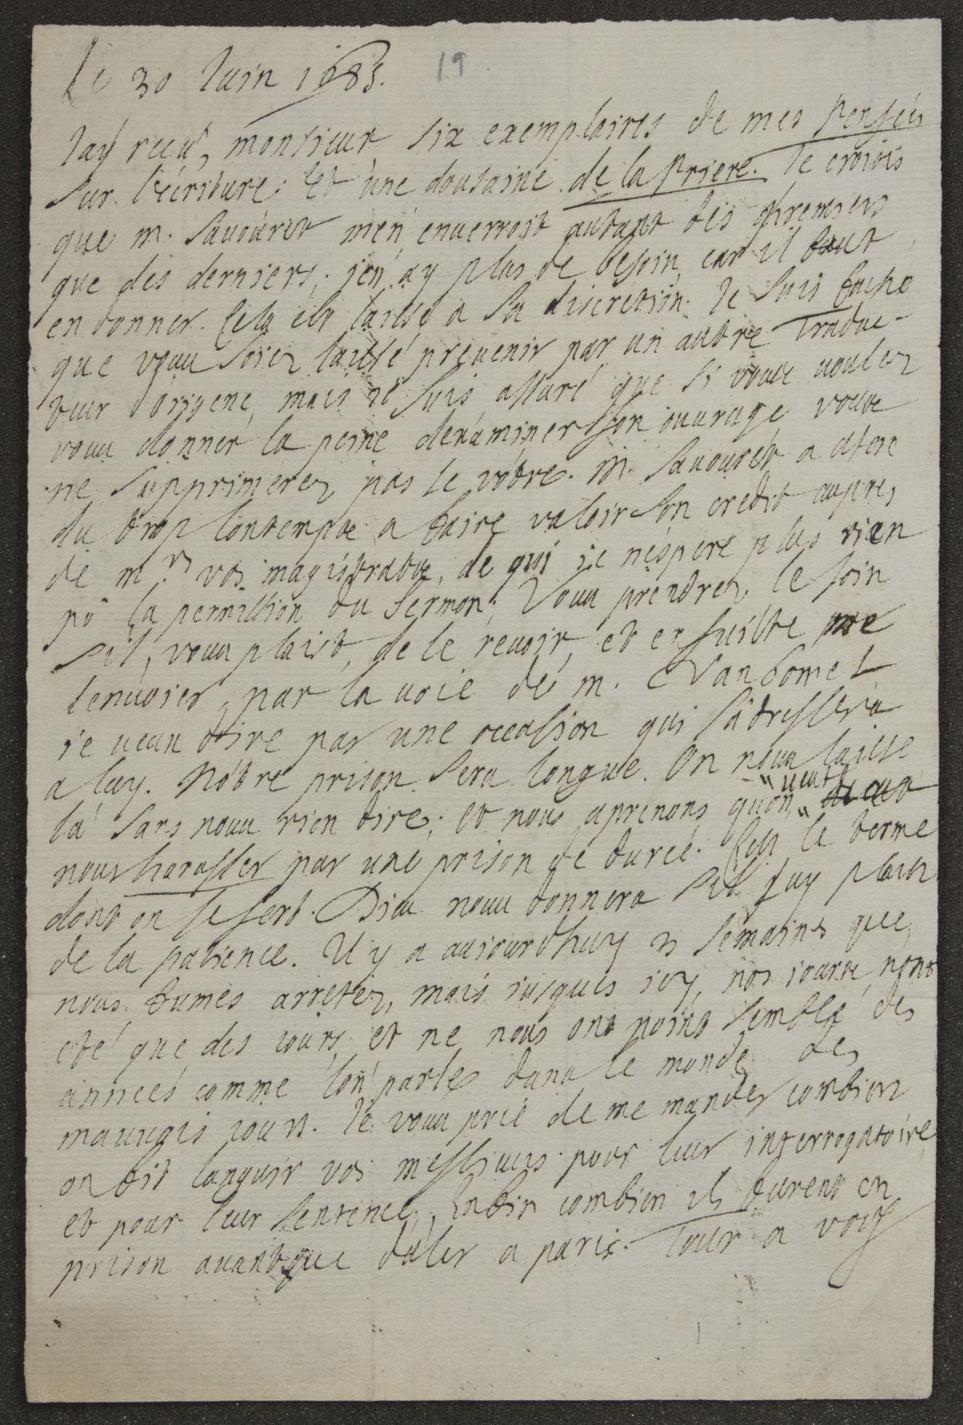 Le 30 Juin 1685. 19
J'ay receu, monsieur six exemplaires de mes pensées
sur l'écriture; Et une dousaine de la priere. Je croiois
que m. Savouret m'en enverroit autant des premiers
que des derniers; j'en ay plus de besoin, car il faut
en donner. Cela est laissé a sa discretion. Je suis faché
que vous soiez laissé prevenir par un autre Traduc-
teur d'origene, mais je suis assuré que si vous voulez
vous donner la peine d'examiner son ouvrage vous
ne supprimerez pas le vôtre. M. Savouret a
du trop longtemps a faire valoir son credit aupres
de mrs vos magistrats, de qui je n'espere plus rien
pr la permission du sermon; Vous prendrez le soin
s'il vous plaist, de le revoir, et ensuitte me
l'envoier par la voie de m. Vangomel
je veux dire par une occasion qui s'adressera
a luy. Nôtre prison sera longue. On nous laisse
là sans nous rien dire; et nous aprenons qu'on veut
nous harasser par une prison de durée. C'est le terme
dont on se sert. Dieu nous donnera s'il luy plaist
de la patience. Il y a aujourd'huy 3 semaines que
nous fumes arretez, mais jusques icy, nos jours n'ont
eté que des jours et ne nous ont point semblé des
années comme l'on parle dans le monde des
mauvais jours. Je vous prie de me mander combien
on fit languir vos messieurs pour leur interrogatoire
et pour leur sentence, Enfin combien ils furent en
prison avant que d'aler a paris. Tout a vous